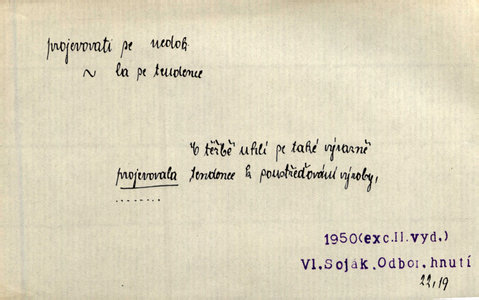 projevovati se nedok.
~ la se tendence
V těžbě uhlí se také výrazně
projevovala tendence k soustřeďování výroby,
........
1950(exc.II.vyd.)
Vl.Soják,Odbor.hnutí
22,19